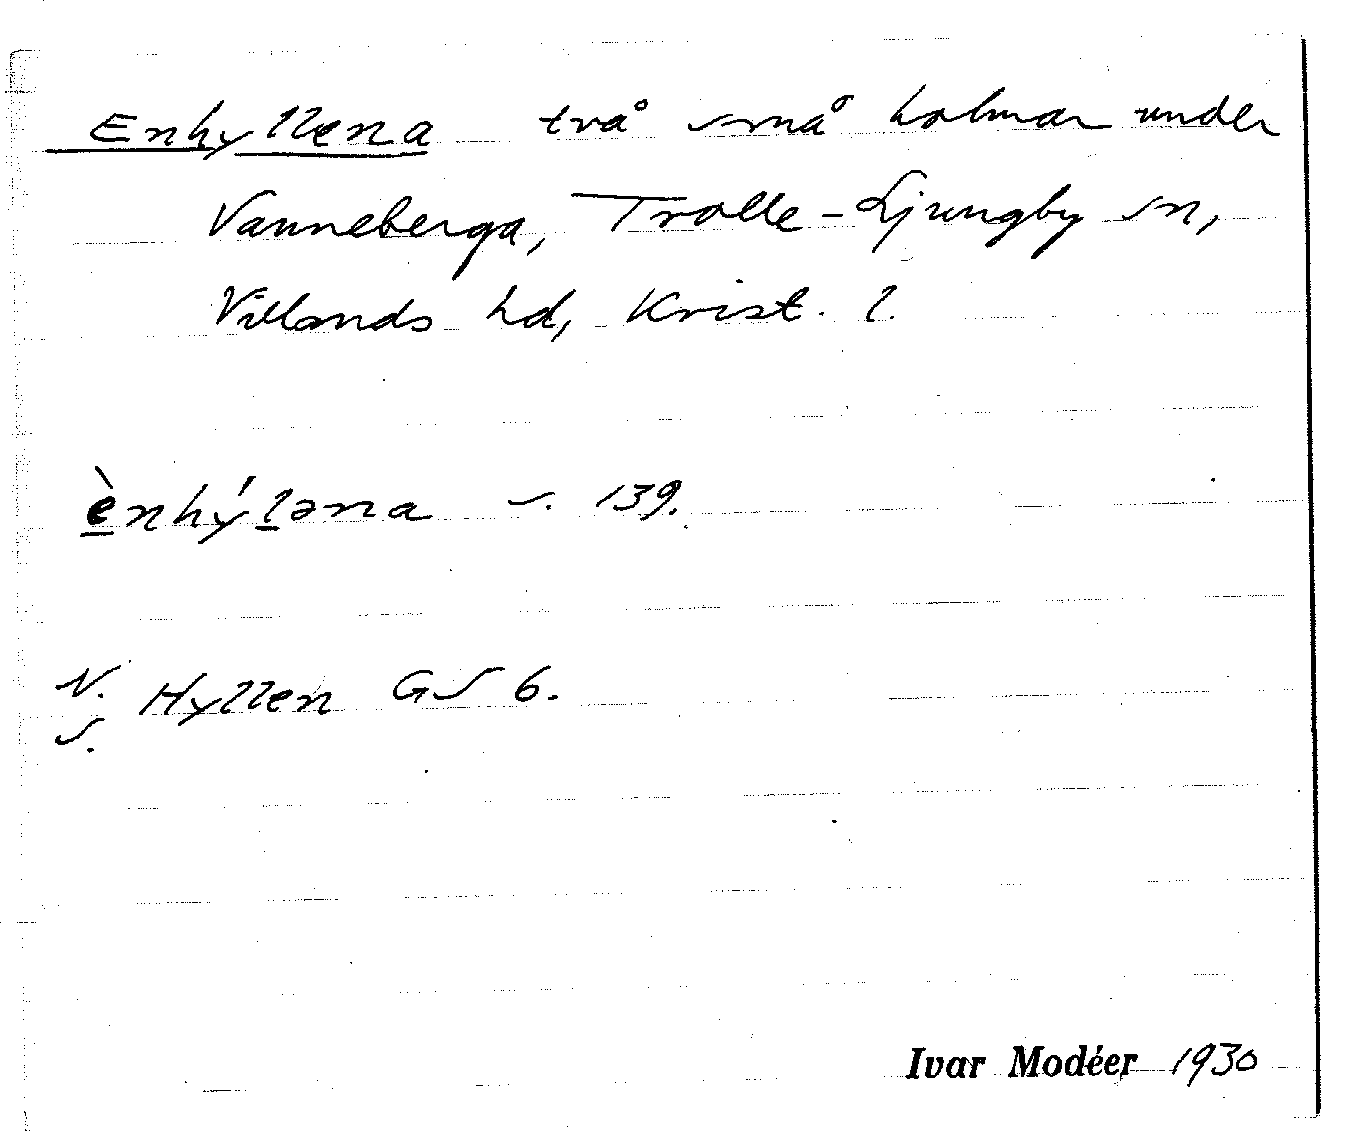 Enhyllena två små holmar under
Vanneberga, Trolle-Ljungby sn,
Villands hd, Krist. l.
ènhýləna s. 139.
N. Hyllen GS 6.
S.
Ivar Modéer 1930